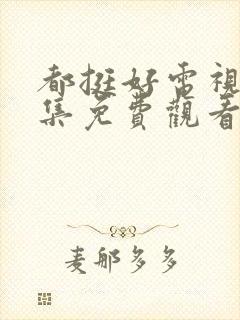 都挺好電視
集免費觀看
麦郍多多